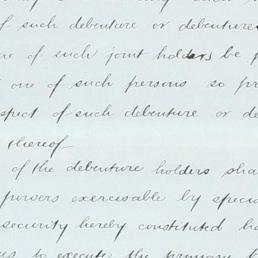 of such debenture or debentures
re of such joint holders be p
one of such persons so pr
spect of such debenture or de
thereof
of the debenture holders sha
powers exercisable by specia
security hereby constituted be
to execute the primary t